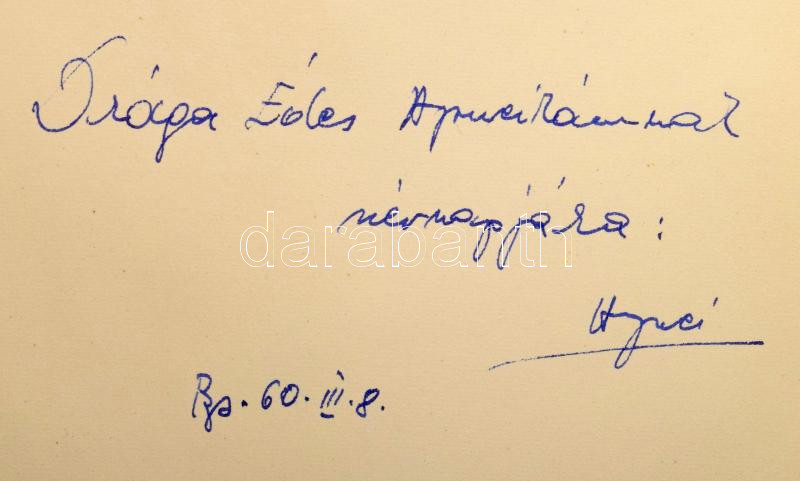 Drága Édes Apucikámnak
névnapjára:
Bp. 60. III. 8.
darabanth